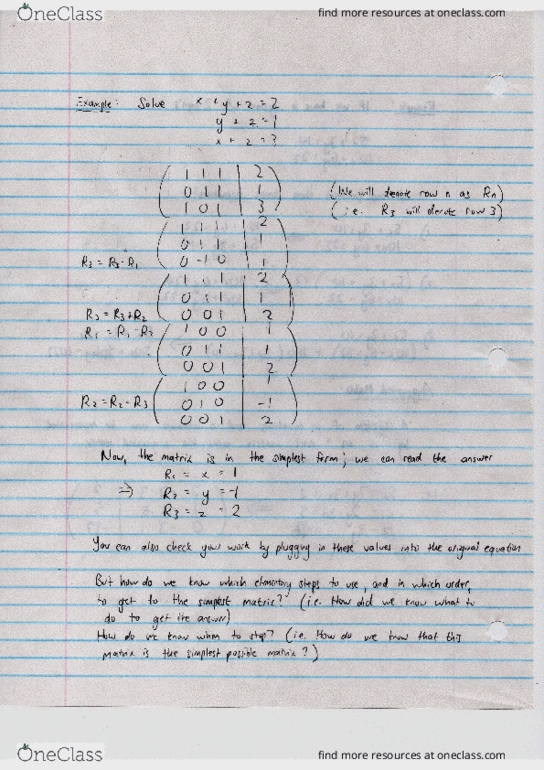 OneClass
find more resources at oneclass.com
Example: Solve x + y + z = 2
y + z = 1
x + z = 3
( 1 1 1 | 2 )
( 0 1 1 | 1 ) (We will denote row n as Rn)
( 1 0 1 | 3 ) (i.e. R3 will denote row 3)
( 1 1 1 | 2 )
( 0 1 1 | 1 )
R3 = R3 - R1 ( 0 -1 0 | 1 )
( 1 1 1 | 2 )
( 0 1 1 | 1 )
R3 = R3 + R2 ( 0 0 1 | 2 )
R1 = R1 - R2 ( 1 0 0 | 1 )
( 0 1 1 | 1 )
( 0 0 1 | 2 )
( 1 0 0 | 1 )
R2 = R2 - R3 ( 0 1 0 | -1 )
( 0 0 1 | 2 )
Now, the matrix is in the simplest form; we can read the answer
R1 = x = 1
=> R2 = y = -1
R3 = z = 2
You can also check your work by plugging in these values into the original equation
But how do we know which elementary steps to use, and in which order,
to get to the simplest matrix? (i.e. How did we know what to
do to get the answer)
How do we know when to stop? (i.e. How do we know that this
matrix is the simplest possible matrix?)
OneClass
find more resources at oneclass.com